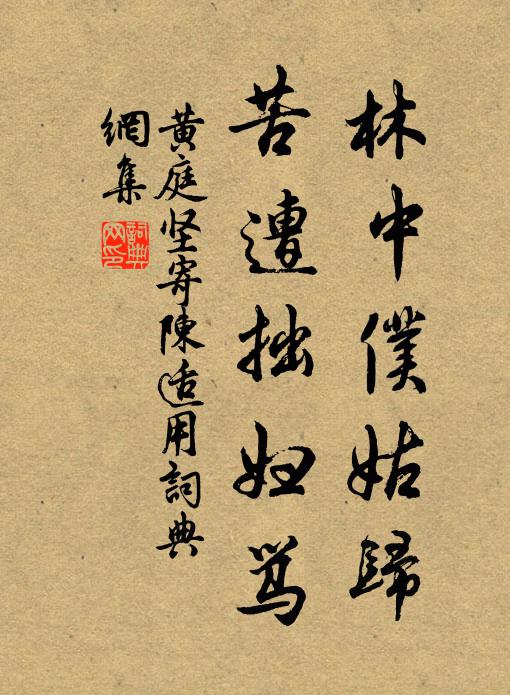 林中僕姑歸
苦遭拙妇骂
黄庭坚寄陳适用詞典
網集
詞典
网印